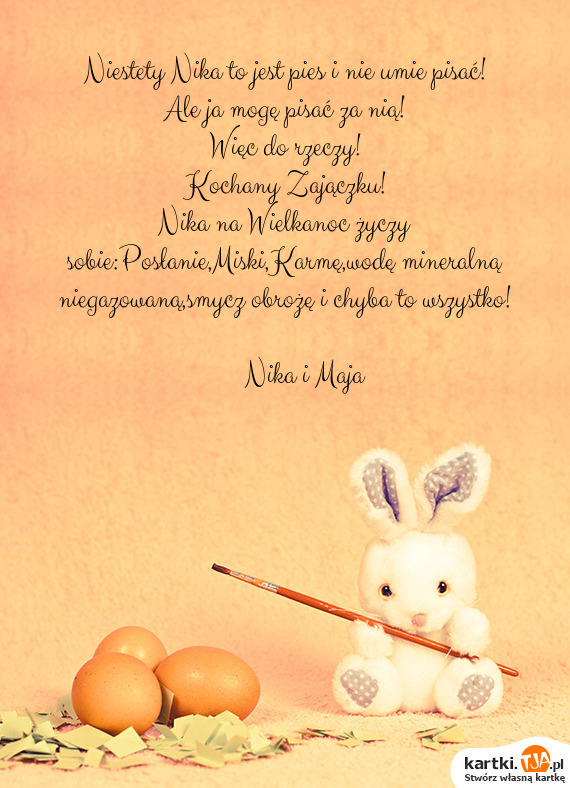 Niestety Nika to jest pies i nie umie pisać!
Ale ja mogę pisać za nią!
Więc do rzeczy!
Kochany Zajączku!
Nika na Wielkanoc życzy
sobie:Posłanie,Miski,Karmę,wodę mineralną
niegazowaną,smycz obrożę i chyba to wszystko!
Nika i Maja
kartki.TJA.pl
Stwórz własną kartkę